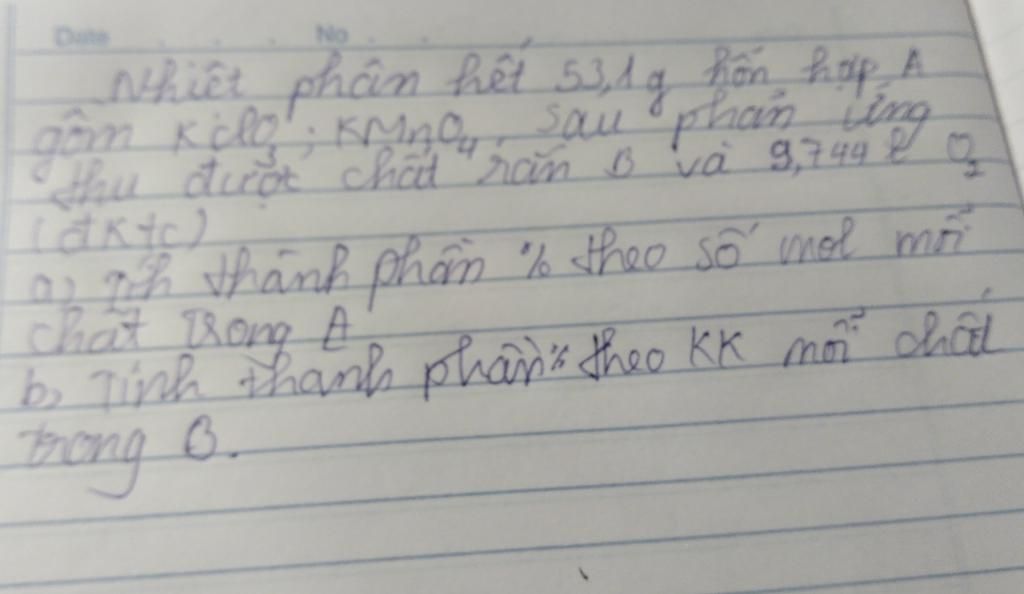 Date No
Nhiệt phân hết 53,1g hỗn hợp A
gồm KClO3; KMnO4, sau phản ứng
thu được chất rắn B và 9,744 l O2
(đKtc)
a, Tíh thành phần % theo số mol mỗi
chất trong A
b, Tính thành phần % theo KK mỗi chất
trong B.